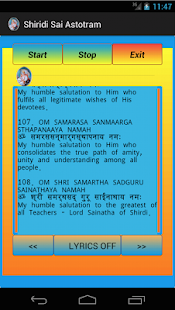 11:47
Shiridi Sai Astotram
Start Stop Exit
My humble salutation to Him who
fulfils all legitimate wishes of His
devotees.
107. OM SAMARASA SANMAARGA
STHAPANAAYA NAMAH
ॐ समरससन्मार्गस्थापनाय नमः
My humble salutation to Him who
consolidates the true path of amity,
unity and understanding among all
people.
108. OM SHRI SAMARTHA SADGURU
SAINATHAYA NAMAH
ॐ श्री समर्थसद् गुरु साईनाथाय नमः
My humble salutation to the greatest of
all Teachers - Lord Sainatha of Shirdi.
<< LYRICS OFF >>